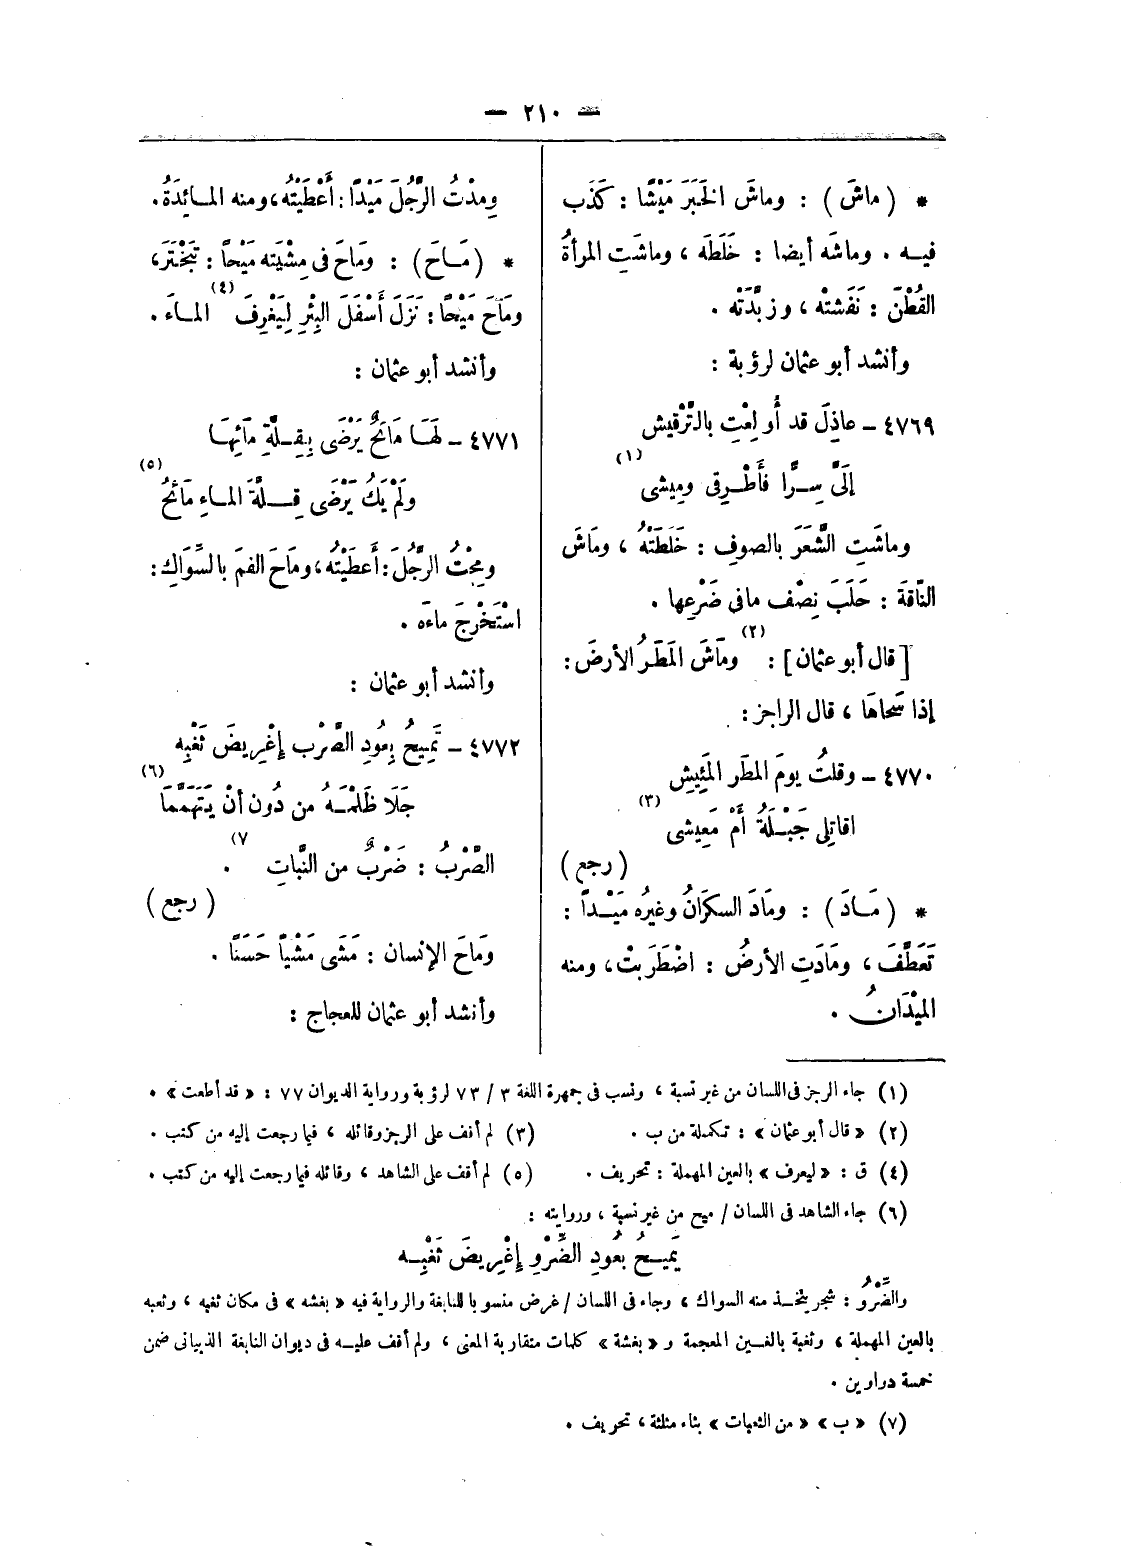 — ٢١٠ —
* ( ماشَ ) : وماشَ الخَبَرَ مَيْشًا : كَذَب
فيـه . وماشَه أيضا : خَلَطَه ، وماشَتِ المرأةُ
القُطْنَ : نَفَشتْه ، وزبَّدَتْه .
وأنشد أبو عثمان لرؤبة :
٤٧٦٩ – عاذِلَ قد أُولِعْتِ بالتَّرْقيش
إلَىَّ سِـرًّا فأَطْـرِقى ومِيشى (١)
وماشَتِ الشَّعَرَ بالصوفِ : خَلَطَتْهُ ، ومَاشَ
النَّاقَةَ : حَلَبَ نِصْف مافى ضَرْعِها .
[ قال أبو عثمان ] (٢) : ومَاشَ المَطَـرُ الأرضَ :
إذا سَحاهَا ، قال الراجز :
٤٧٧٠ – وقلتُ يومَ المطَر المَئِيشِ
اقاتِلِى جَبْـلَةُ أَمْ مَعِيشى (٣)
( رجع )
* ( مَـادَ ) : ومَادَ السكرَانُ وغيرُه مَيْـداً :
تَعَطَّفَ ، ومَادَتِ الأرضُ : اضْطَرَبتْ ، ومنه
المَيْدَانُ .
ومِدْتُ الرَّجُلَ مَيْدًا : أَعْطَيْتُه ، ومنه المـائِدَةُ .
* ( مَـاحَ ) : ومَاحَ فى مِشْيَته مَيْحاً : تَبَخْتَرَ ،
ومَاحَ مَيْحًا : نَزَلَ أَسْفَلَ البِئْرِ لِيَغْرِفَ (٤) المـاءَ .
وأنشد أبو عثمان :
٤٧٧١ – لَهَا مَائحٌ يَرْضَى بِقِـلَّةِ مَائِهَـا
ولَمْ يَكُ يَرْضَى قِـلَّةَ المـاءِ مَائحُ (٥)
ومِحْتُ الرَّجُلَ : أَعطَيْتُه ، ومَاحَ الفمَ بالسِّوَاكِ :
اسْتَخْرَجَ ماءَه .
وأنشد أبو عثمان :
٤٧٧٢ – تَمِيحُ بِعُودِ الضَّرْب إغْرِيضَ ثَغْبِه
جَلَا ظَلْمَـهُ من دُون أنْ يَتَهَمَّمَا (٦)
الضَّرْبُ : ضَرْبٌ من النَّباتِ ٧) .
( رجع )
ومَاحَ الإنسان : مَشَى مَشْياً حَسَنًا .
وأنشد أبو عثمان للعجاج :
(١) جاء الرجز فى اللسان من غير نسبة ، ونسب فى جمهرة اللغة ٣ / ٧٣ لرؤبة ورواية الديوان ٧٧ : « قد أطعت » .
(٢) « قال أبو عثمان » : تكملة من ب . (٣) لم أقف على الرجز وقائله ، فيما رجعت إليه من كتب .
(٤) ق : « ليعرف » بالعين المهملة : تحريف . (٥) لم أقف على الشاهد ، وقائله فيما رجعت إليه من كتب .
(٦) جاء الشاهد فى اللسان / ميح من غير نسبة ، وروايته :
يَميـحُ بعُودِ الضِّرْوِ إغْرِيضَ ثَغْبِـه
والضَّرْوُ : شجر يتخـذ منه السواك ، وجاء فى اللسان / غرض منسوبا للنابغة والرواية فيه « بغشه » فى مكان ثغبه ، وثعبه
بالعين المهملة ، وثغبة بالغـين المعجمة و « بغشة » كلمات متقاربة المعنى ، ولم أقف عليـه فى ديوان النابغة الذبيانى ضمن
خمسة دواوين .
(٧) « ب » « من الثبات » بثاء مثلثة ، تحريف .